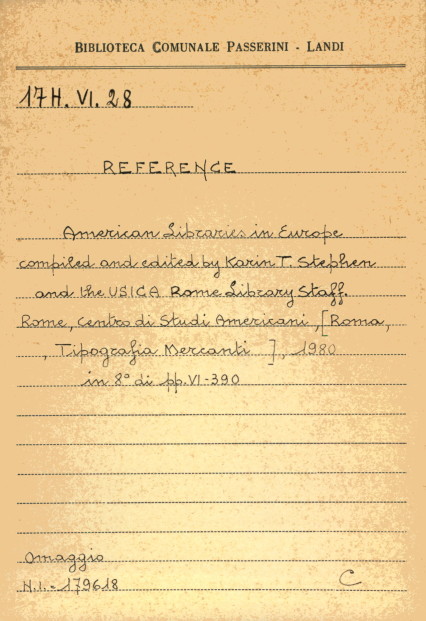 BIBLIOTECA COMUNALE PASSERINI - LANDI
17H. VI. 28
REFERENCE
American Libraries in Europe
compiled and edited by Karin T. Stephen
and the USICA Rome Library Staff.
Rome, Centro di Studi Americani, [Roma,
, Tipografia Mercanti ], 1980
in 8° di pp. VI-390
Omaggio
N.I. - 179618
C